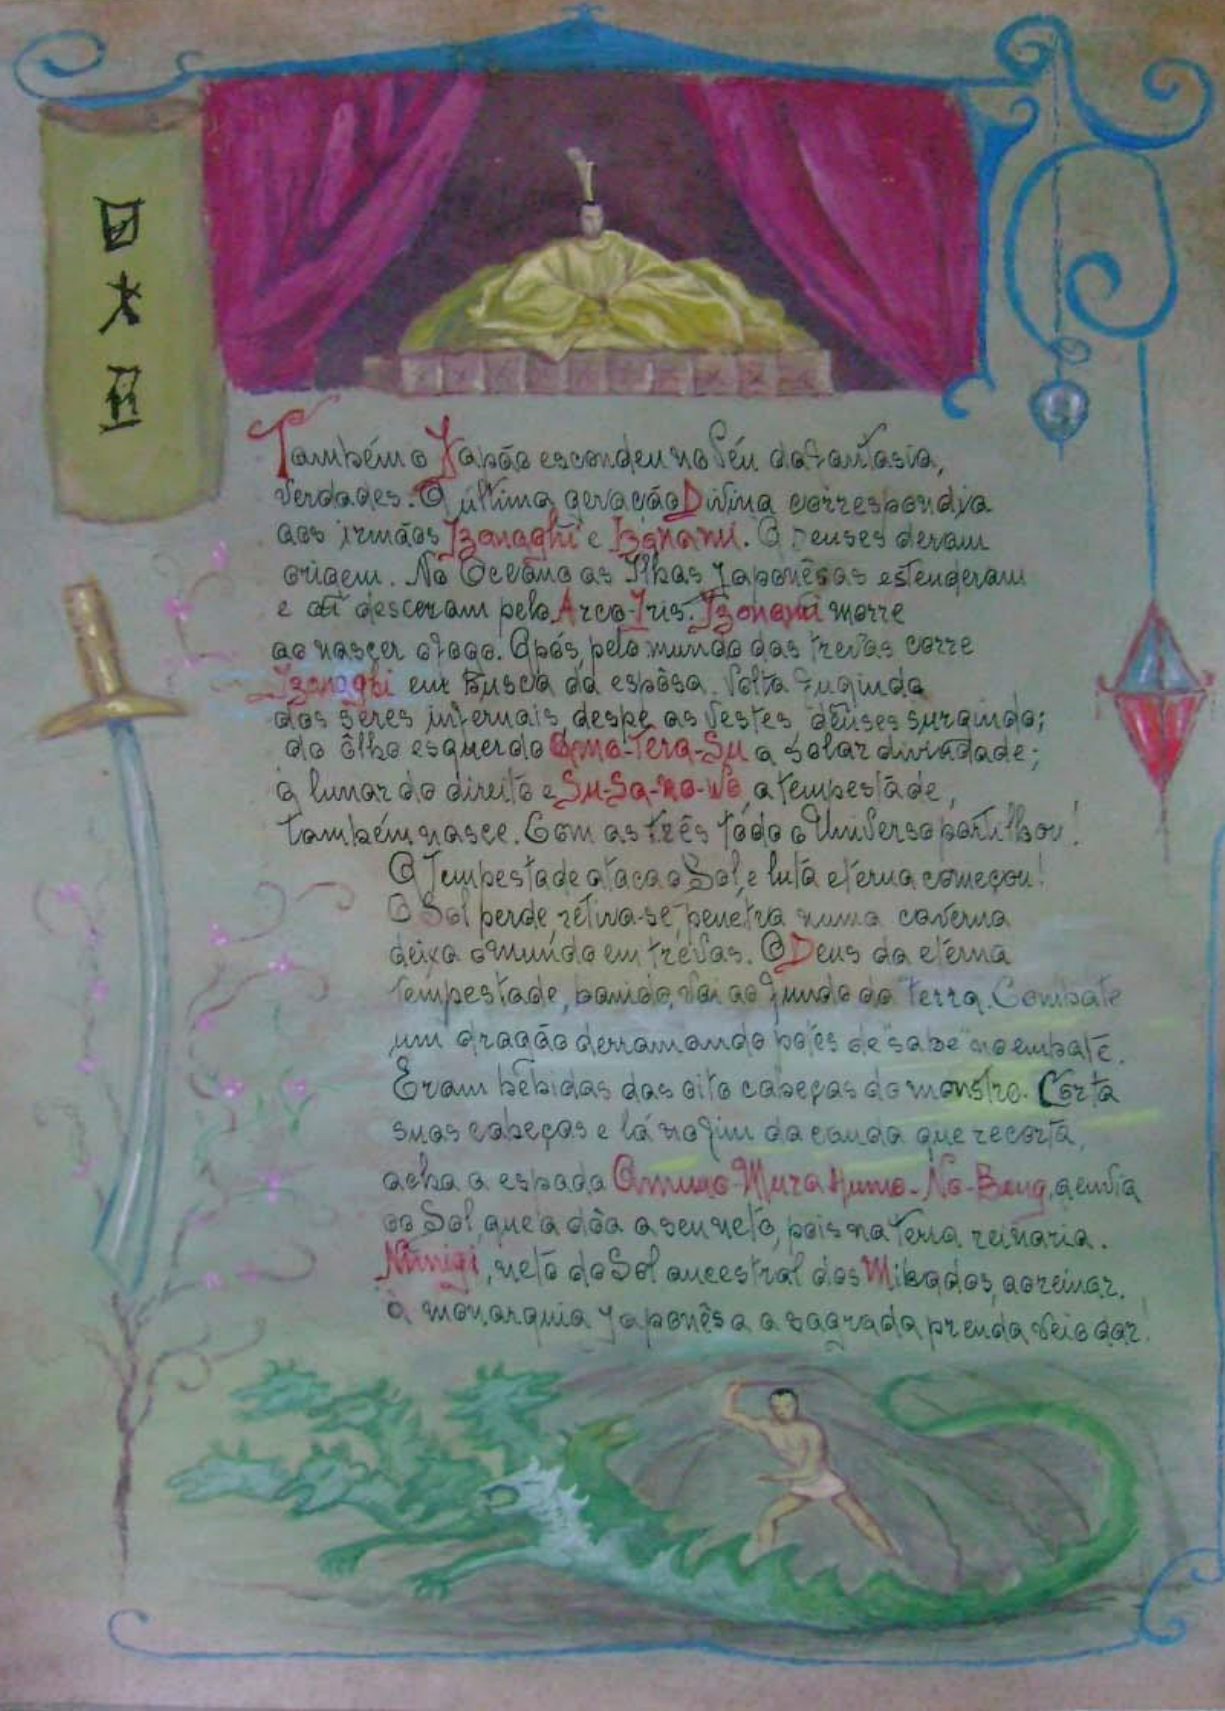 Também o Japão escondeu no Véu da Fantasia,
Verdades. A última geração Divina correspondia
aos irmãos Izanaghi e Izanami. Os Deuses deram
origem. No Oceâno as Ilhas Japonêsas estenderam
e desceram pelo Arco-Iris. Izanami morre
ao nascer o fogo. Após, pelo mundo das trevas corre
Izanaghi em Busca da espôsa. Volta Fugindo
dos seres infernais, despe as Vestes deuses surgindo;
do ôlho esquerdo Ama-Tera-Su a solar divindade;
a lunar do direito e Su-Sa-no-Wo, a tempestade,
também nasce. Com as três tôdo o Universo partilhou!
A Tempestade ataca o Sol, e luta eterna começou!
O Sol perde, retira-se, penetra numa caverna
deixa o mundo em trevas. O Deus da eterna
tempestade, banido, Vai ao fundo da Terra. Combate
um dragão derramando potes de "sake" no embate.
Eram bebidas das oito cabeças do monstro. Corta
suas cabeças e lá no fim da cauda que recorta,
acha a espada Amuno-Mura Kumo-No-, a envia
ao Sol, que a dôa a seu neto, pois na Terra reinaria.
Ninigi, neto do Sol ancestral dos Mikados, ao reinar.
à monarquia Japonêsa a sagrada prenda veio dar!